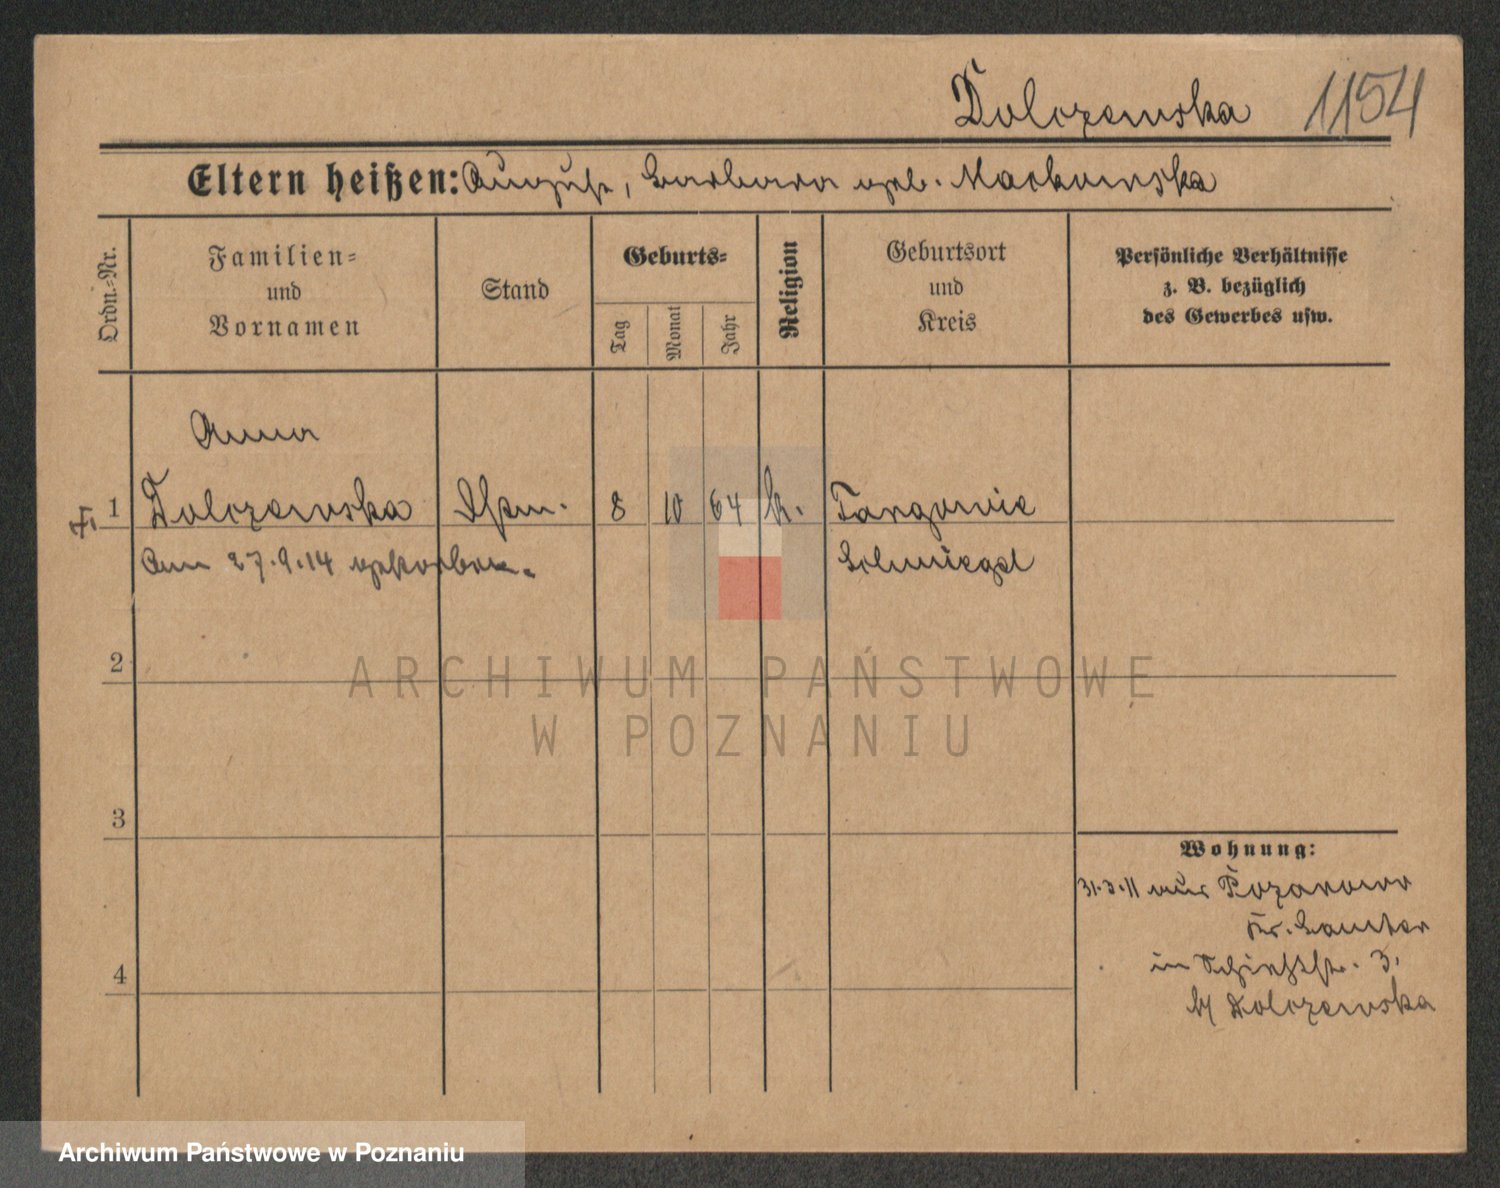 Dolczewska 1154
Eltern heißen: August, Barbara geb. Markowska
Ordn.-Nr.
Familien-
und
Vornamen
Stand
Geburts-
Tag
Monat
Jahr
Religion
Geburtsort
und
Kreis
Persönliche Verhältnisse
z. B. bezüglich
des Gewerbes usw.
Anna
1 Dolczewska 8 10 64 k. Targowie
Am 27.9.14 gestorben. Schmiegel
2
3
4
Wohnung:
31.3.11 aus Pozarowo
Kr. Samter
in 3.
b/ Dolczewska
ARCHIWUM PAŃSTWOWE
W POZNANIU
Archiwum Państwowe w Poznaniu